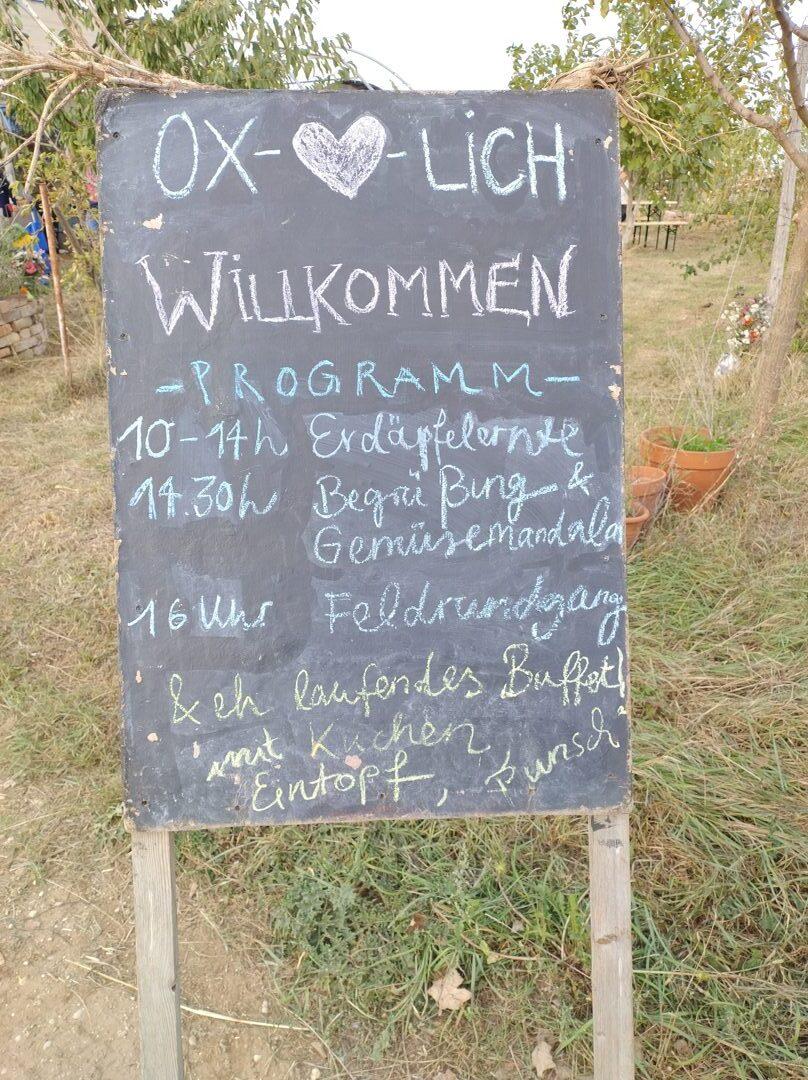 OX-♥-LiCH
WiLLKOMMEN
-PROGRAMM-
10-14h Erdäpfelernte
14.30h Begrüßung &
Gemüsemandala
16 Uhr Feldrundgang
& eh laufendes Buffet!
mit Kuchen,
Eintopf, Punsch